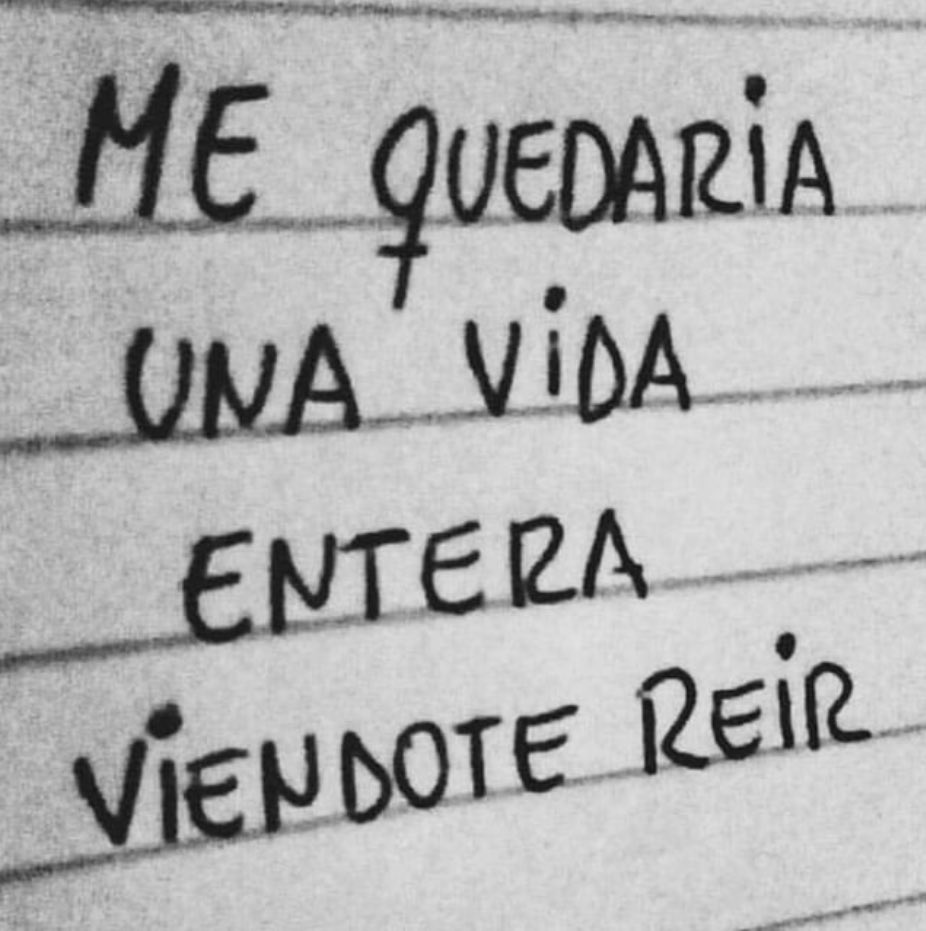 ME QUEDARiA
UNA ViDA
ENTERA
ViENDOTE REiR